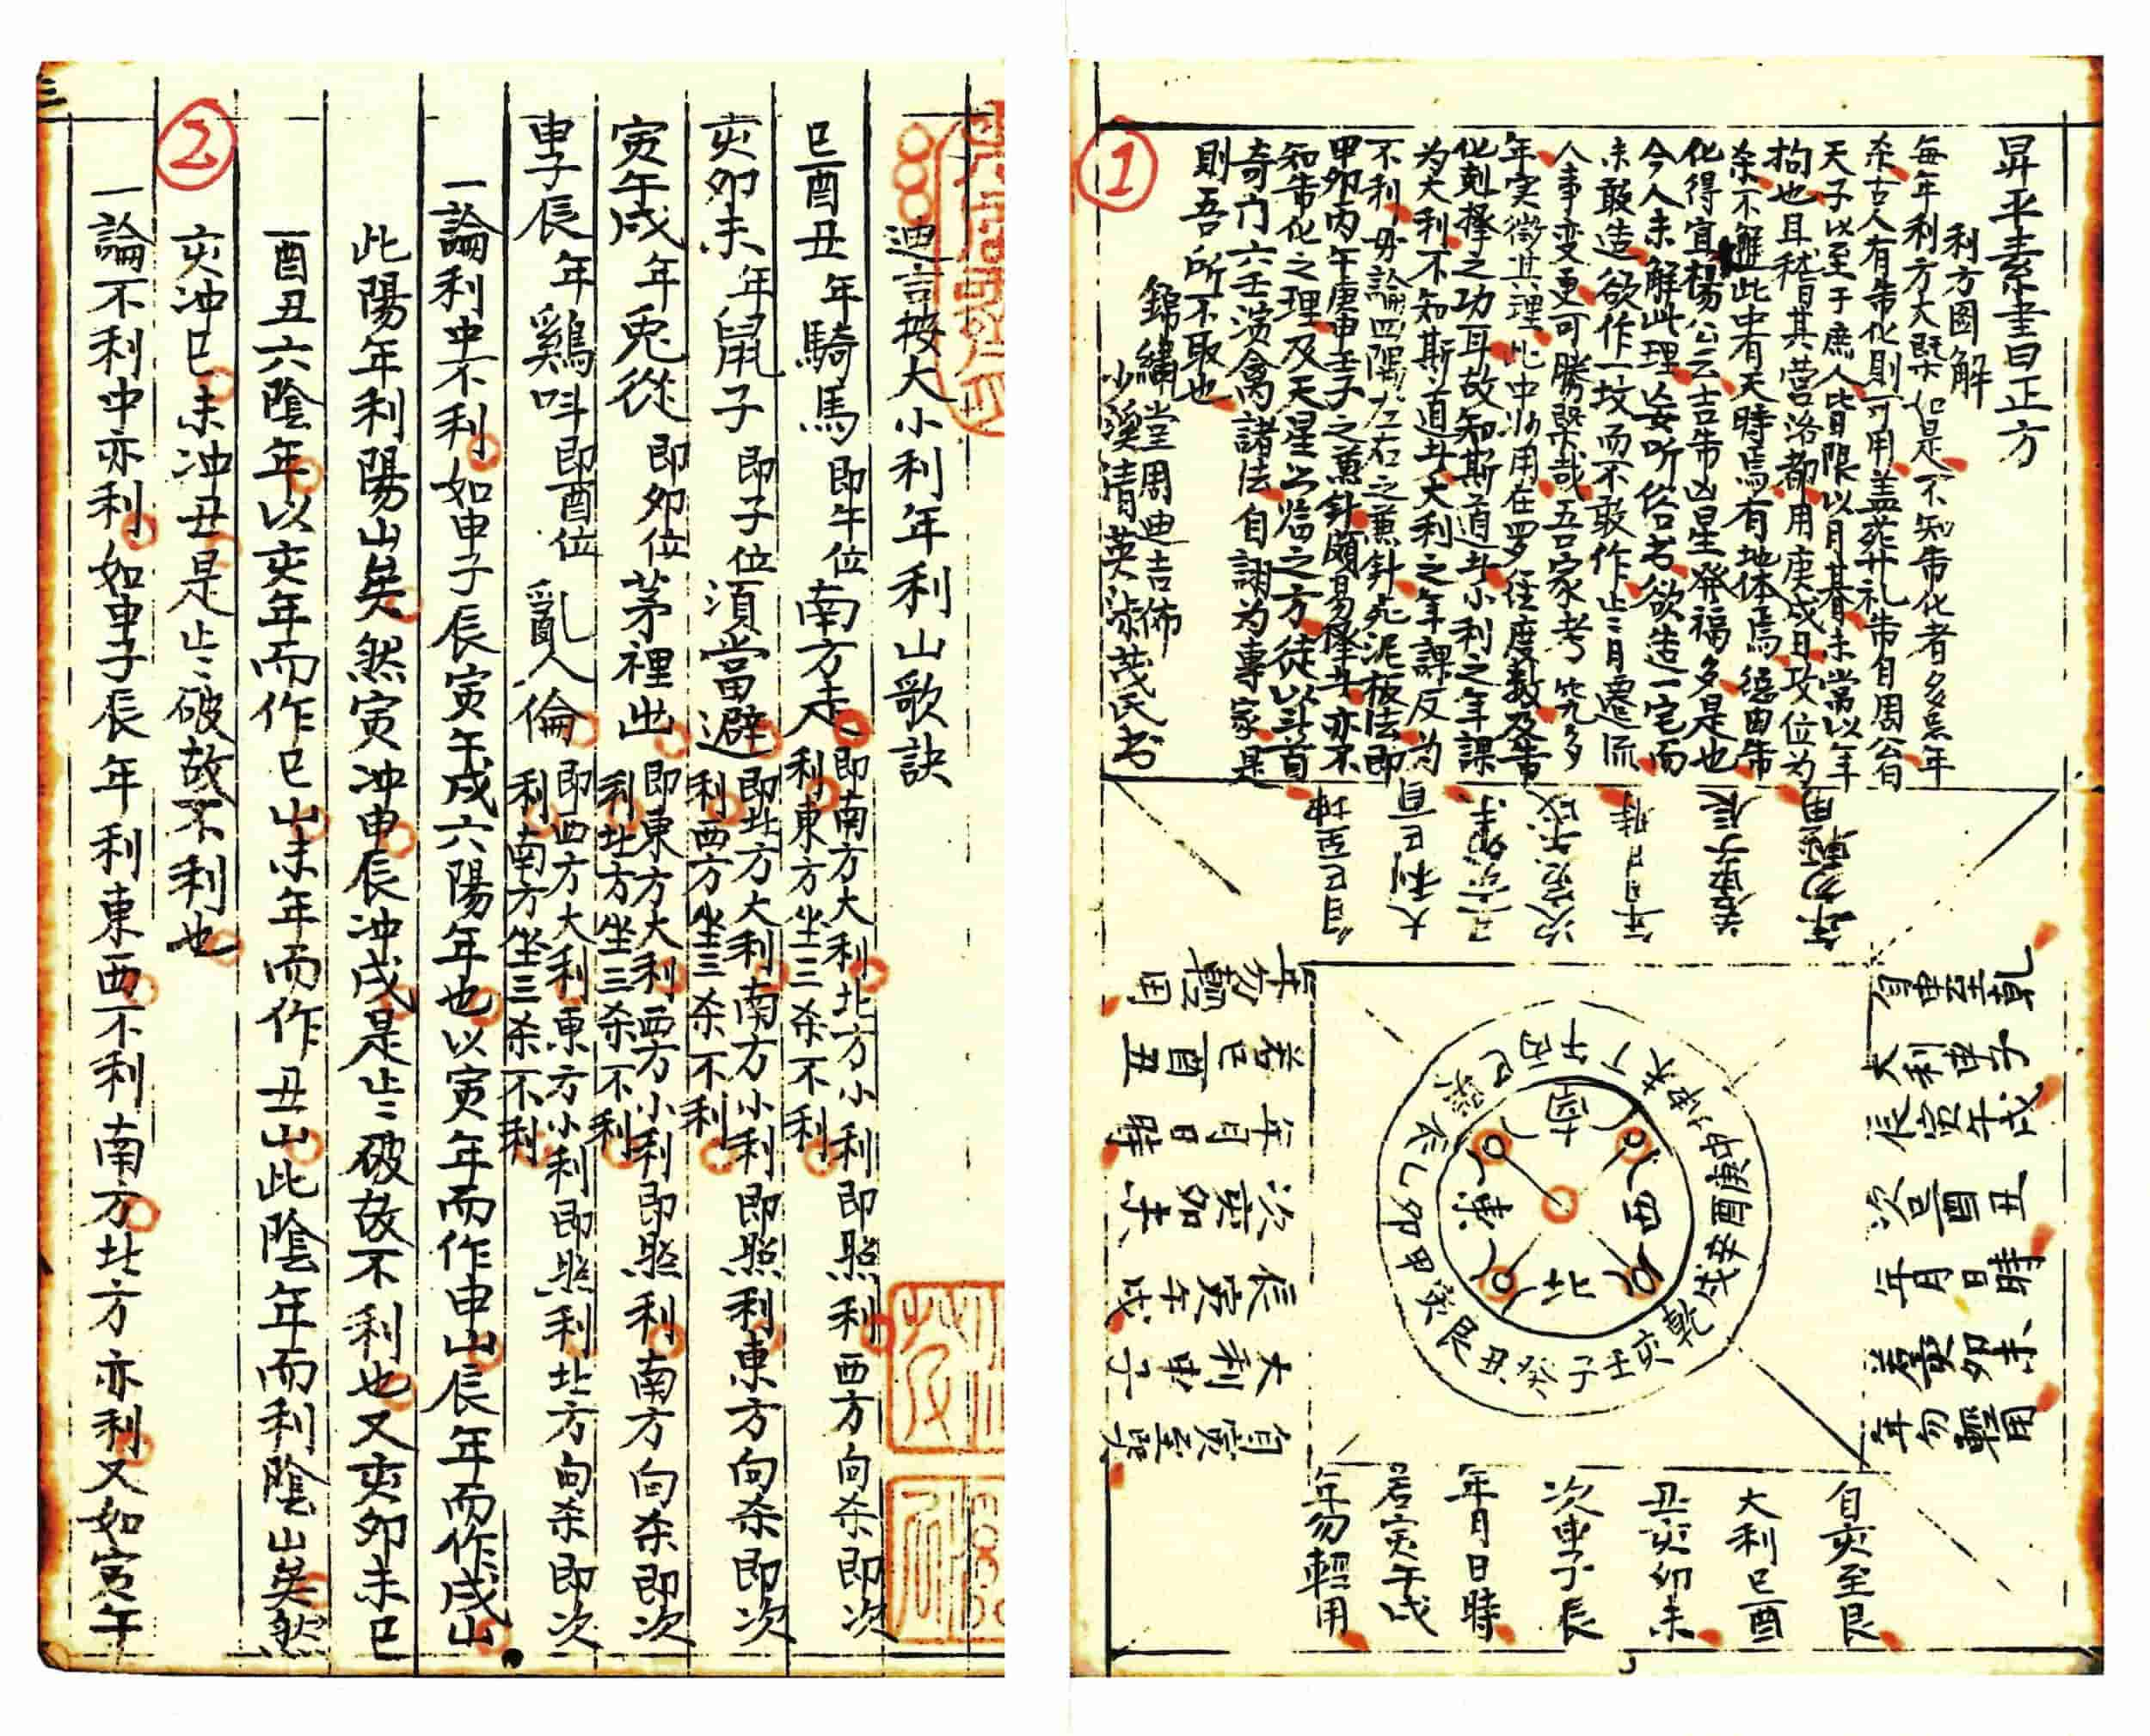 昇平素書曰正方
利方圖解
每年利方大槩如是不知制化者多忌年
杀古人有制化則可用盖葬礼制自周公有
天子以至于庶人皆限以月碁未常以年
拘也且稽其营洛都用庚戌日攻位为
杀不避此中有天時焉有地体焉總由制
化得宜楊公云吉制凶星発福多是也
今人未解此理妄听俗名欲造一宅而
未敢造欲作一坟而不敢作止二月遷流
人事变更可勝槩哉吾家考究多
年实徵其理此中作用在罗经度数及制
化剋择之功耳故知斯道者小利之年課
为大利不知斯道者大利之年課反为
不利毋論四隅左右之兼針死泥板法即
甲卯丙午庚申壬子之兼針頗易择者亦不
知制化之理及天星公临之方徒以斗首
奇门六壬演禽諸法自謝为專家是
則吾所不取也
錦繡堂周迪吉佈
少溪清英泳茂民书
自巳至坤
大利巳直
次寅午戌
年月日時
若申子辰
年勿輕用
自申至乾
大利申子
辰寅午戌
次巳酉丑
年月日時
若亥卯未
年勿輕用
自亥至艮
大利巳酉
丑亥卯未
次申子辰
年月日時
若寅午戌
年勿輕用
自寅至巽
大利申子
辰寅午戌
次亥卯未
年月日時
若巳酉丑
年勿輕用
南
西
北
東
丙午丁未坤申庚酉辛戌乾亥壬子癸丑艮寅甲卯乙辰巽巳
①
迪言按大小利年利山歌訣
巳酉丑年騎馬即午位南方走即南方大利北方小利即照利西方向杀即次
利東方坐三杀不利
亥卯未年鼠子即子位須當避即北方大利南方小利即照利東方向杀即次
利西方坐三杀不利
寅午戌年兎從即卯位茅裡出即東方大利西方小利即照利南方向杀即次
利北方坐三杀不利
申子辰年鷄呌即酉位亂人倫即西方大利東方小利即照利北方向杀即次
利南方坐三杀不利
一論利中不利如申子辰寅午戌六陽年也以寅年而作申山辰年而作戌山
此陽年利陽山矣然寅冲申辰冲戌是止二破故不利也又亥卯未巳
酉丑六陰年以亥年而作巳山未年而作丑山此陰年而利陰山矣然
亥冲巳未冲丑是止二破故不利也
②
一論不利中亦利如申子辰年利東西不利南方北方亦利又如寅午
三